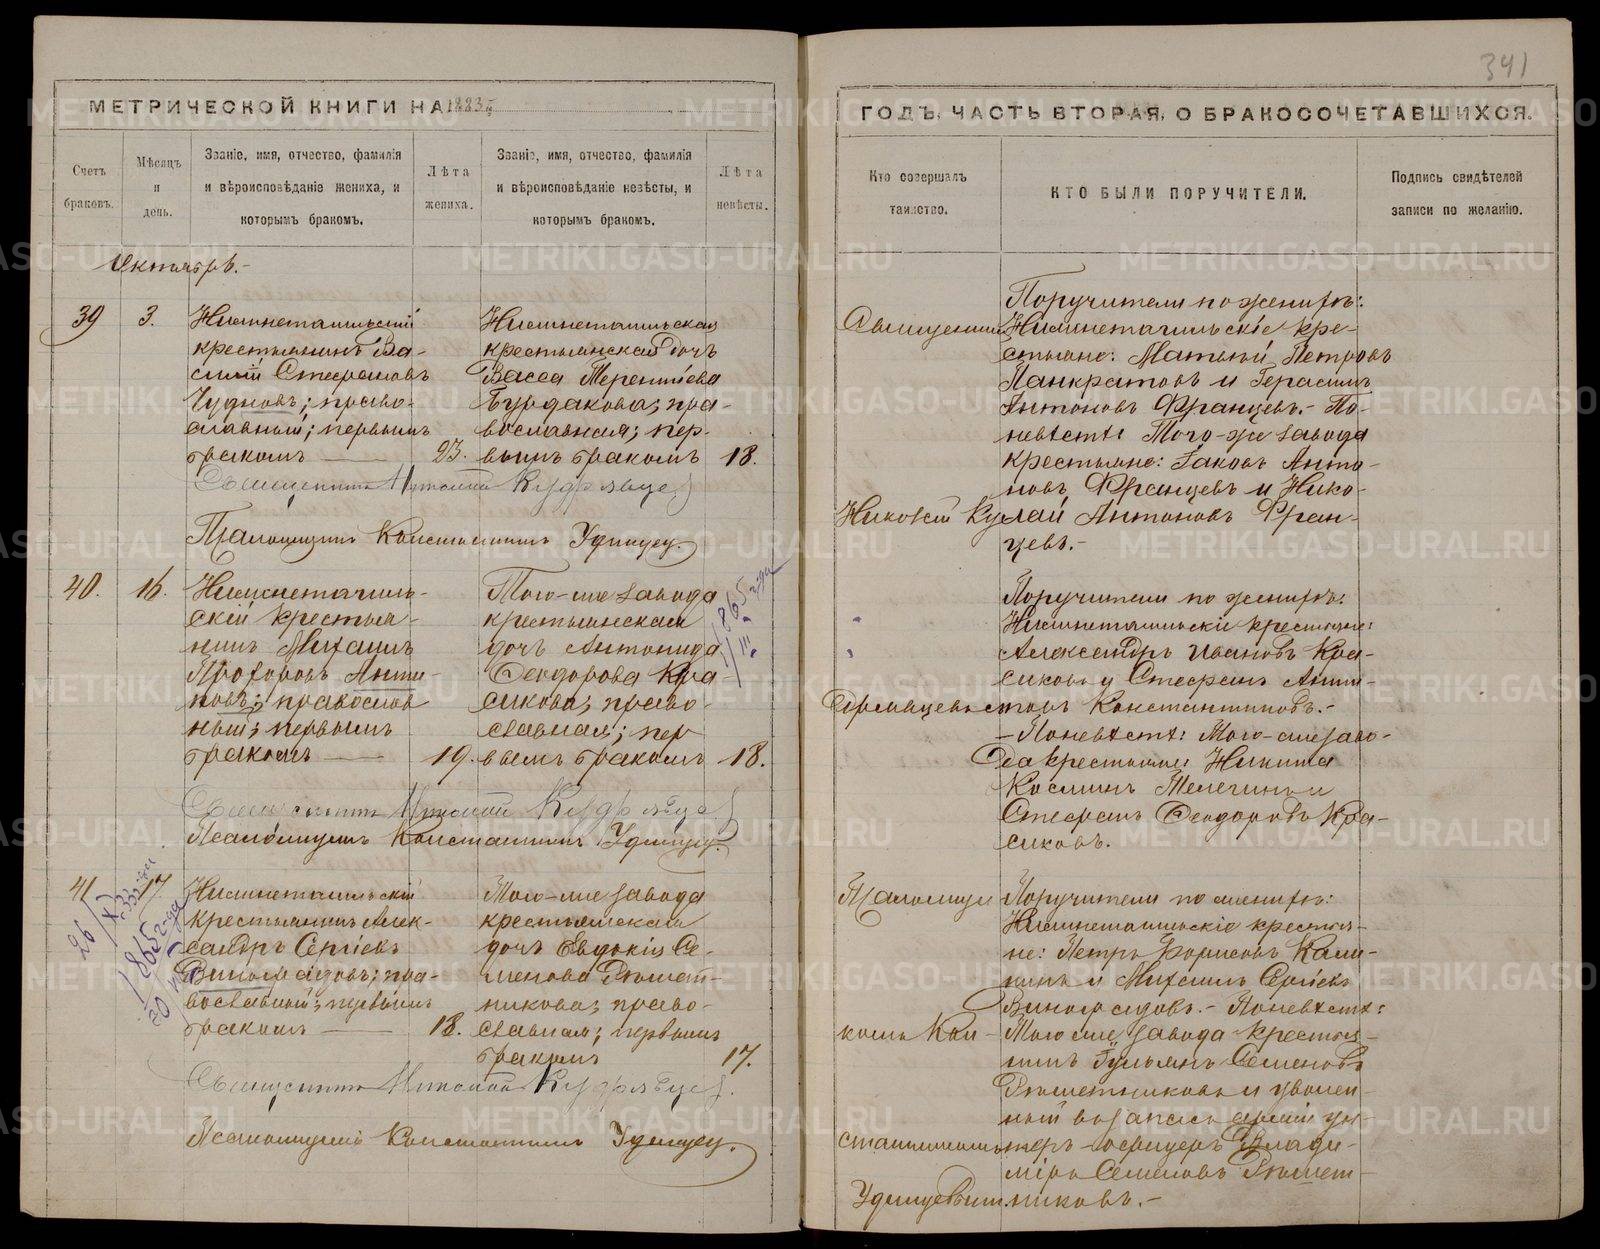 341
МЕТРИЧЕСКОЙ КНИГИ НА 1883й
ГОДЪ, ЧАСТЬ ВТОРАЯ, О БРАКОСОЧЕТАВШИХСЯ.
Счетъ браковъ.
Мѣсяцъ и день.
Званіе, имя, отчество, фамилія и вѣроисповѣданіе жениха, и которымъ бракомъ.
Лѣта жениха.
Званіе, имя, отчество, фамилія и вѣроисповѣданіе невѣсты, и которымъ бракомъ.
Лѣта невѣсты.
Кто совершалъ таинство.
КТО БЫЛИ ПОРУЧИТЕЛИ.
Подпись свидѣтелей записи по желанію.
Октябрь.
39
3.
Нижнетагильскій
крестьянинъ Ва-
силій Стефановъ
Чудновъ; право-
славный; первымъ
бракомъ
23.
Нижнетагильская
крестьянская дочь
Васса Терентіева
Бурдакова; пра-
вославная; пер-
вымъ бракомъ
18.
Священникъ Николай Кудрявцев
Псаломщикъ Константинъ Удинцев.
Священник
Николай Ку
Поручители по женихѣ:
Нижнетагильскіе кре-
стьяне: Матвѣй Петровъ
Панкратовъ и Герасимъ
Антоновъ Францевъ.- По
невѣстѣ Того-же завода
крестьяне: Іаковъ Анто-
новъ Францевъ и Нико-
лай Антоновъ Фран-
цевъ.-
40.
16.
Нижнетагиль-
скій крестья-
нинъ Михаилъ
Прохоровъ Анти-
повъ; православ
ный; первымъ
бракомъ
19.
Того-же завода
крестьянская
дочь Антонида
Ѳеодорова Кра-
сикова; право-
славная; пер
вымъ бракомъ
18.
Священникъ Николай Кудрявцев
Псаломщикъ Константинъ Удинцев.
дрявцевъ с
Поручители по женихѣ:
Нижнетагильскіе крестьяне:
Александръ Ивановъ Кра-
сиковъ и Стефанъ
Константиновъ.-
- По невѣстѣ: Того-же заво-
да крестьяне: Никита
Косминъ Телегинъ и
Стефанъ Ѳеодоровъ Кра-
сиковъ.
41
17.
Нижнетагильскій
крестьянинъ Алек-
сандръ Сергіевъ
Виноградовъ; пра-
вославный; первымъ
бракомъ
18.
Того-же завода
крестьянская
дочь Евдокія Се-
менова Рѣшет-
никова; право-
славная; первымъ
бракомъ
17.
Священникъ Николай Кудрявцев.
Псаломщикъ Константинъ Удинцев.
Псаломщи
комъ Кон-
стантиномъ
Удинцевымъ.
Поручители по женихѣ:
Нижнетагильскіе крестья-
не: Петръ Борисовъ Кали-
нинъ и Михаилъ Сергіевъ
Виноградовъ.- По невѣстѣ:
Того же завода крестья-
нинъ Іуліанъ Семеновъ
Рѣшетниковъ и уволен-
ный въ запасъ арміи ун-
теръ-офицеръ Влади-
міръ Семеновъ Рѣшет-
никовъ.-
METRIKI.GASO-URAL.RU